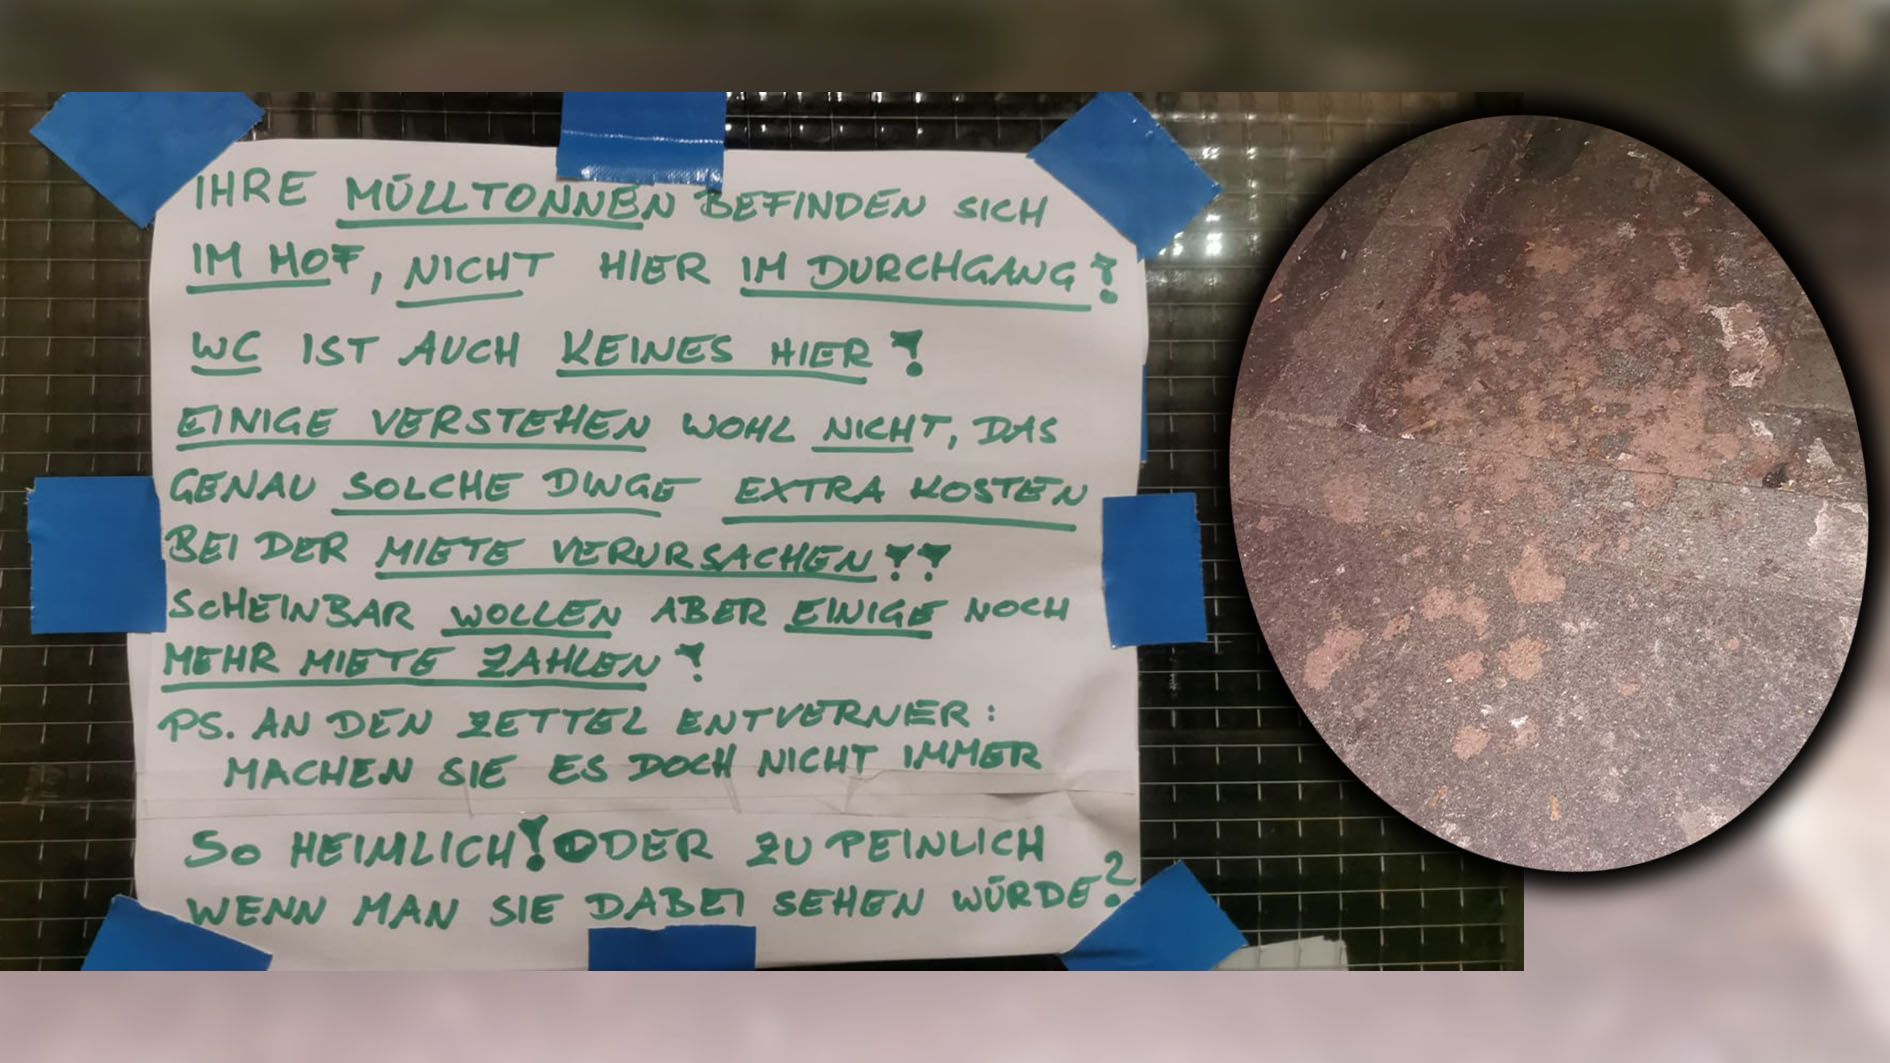 IHRE MÜLLTONNEN BEFINDEN SICH
IM HOF, NICHT HIER IM DURCHGANG!
WC IST AUCH KEINES HIER!
EINIGE VERSTEHEN WOHL NICHT, DAS
GENAU SOLCHE DINGE EXTRA KOSTEN
BEI DER MIETE VERURSACHEN!!
SCHEINBAR WOLLEN ABER EINIGE NOCH
MEHR MIETE ZAHLEN!
PS. AN DEN ZETTEL ENTVERNER:
MACHEN SIE ES DOCH NICHT IMMER
SO HEIMLICH! ODER ZU PEINLICH
WENN MAN SIE DABEI SEHEN WÜRDE?